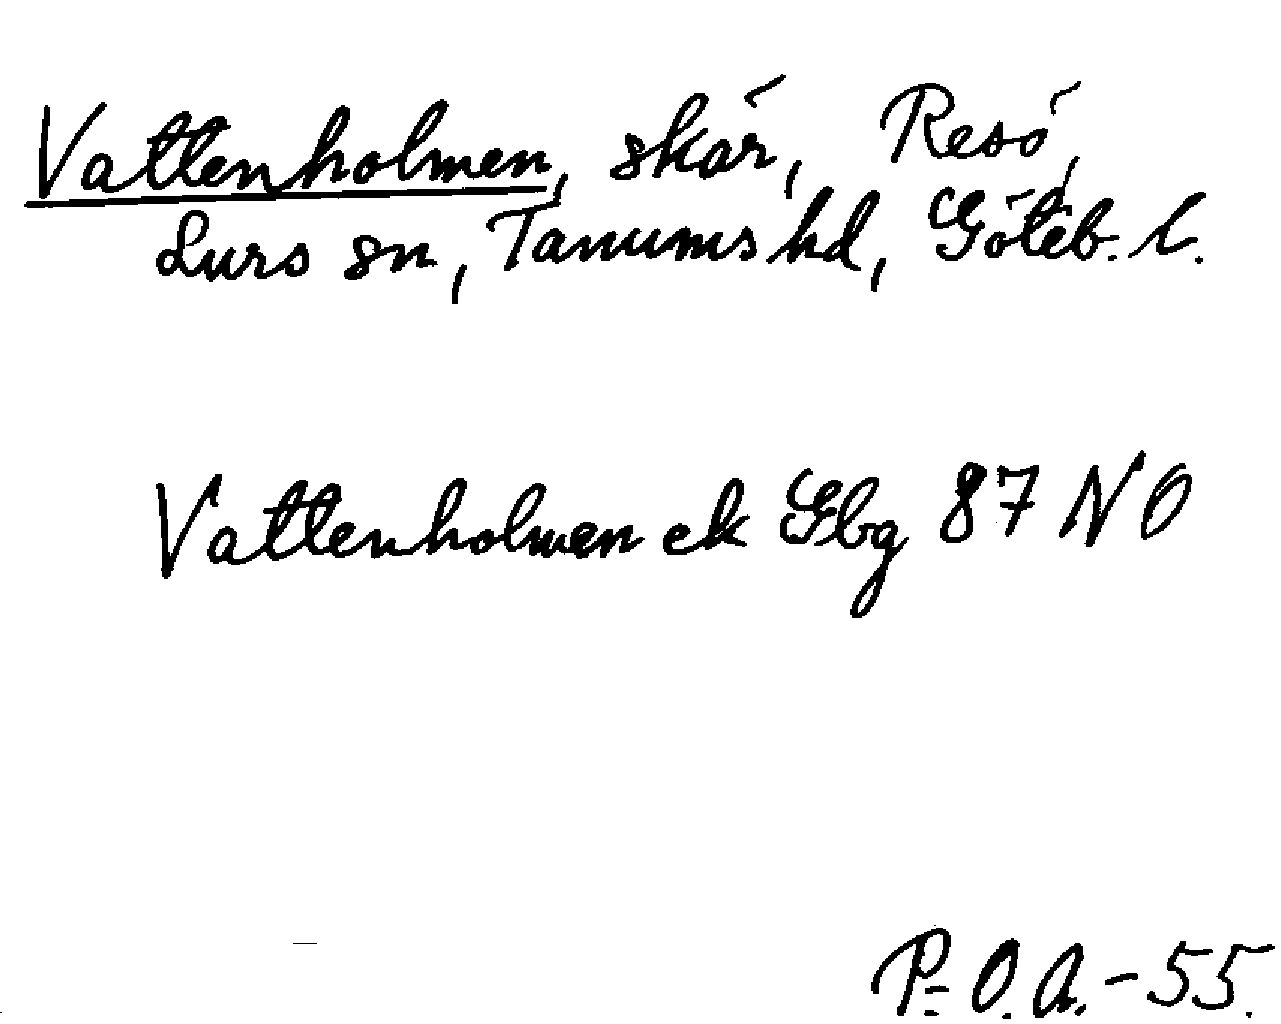 Vattenholmen, skär, Resö,
Lurs sn, Tanums hd, Göteb. l.
Vattenholmen ek Gbg 87 NO
P.-O.A.-55.